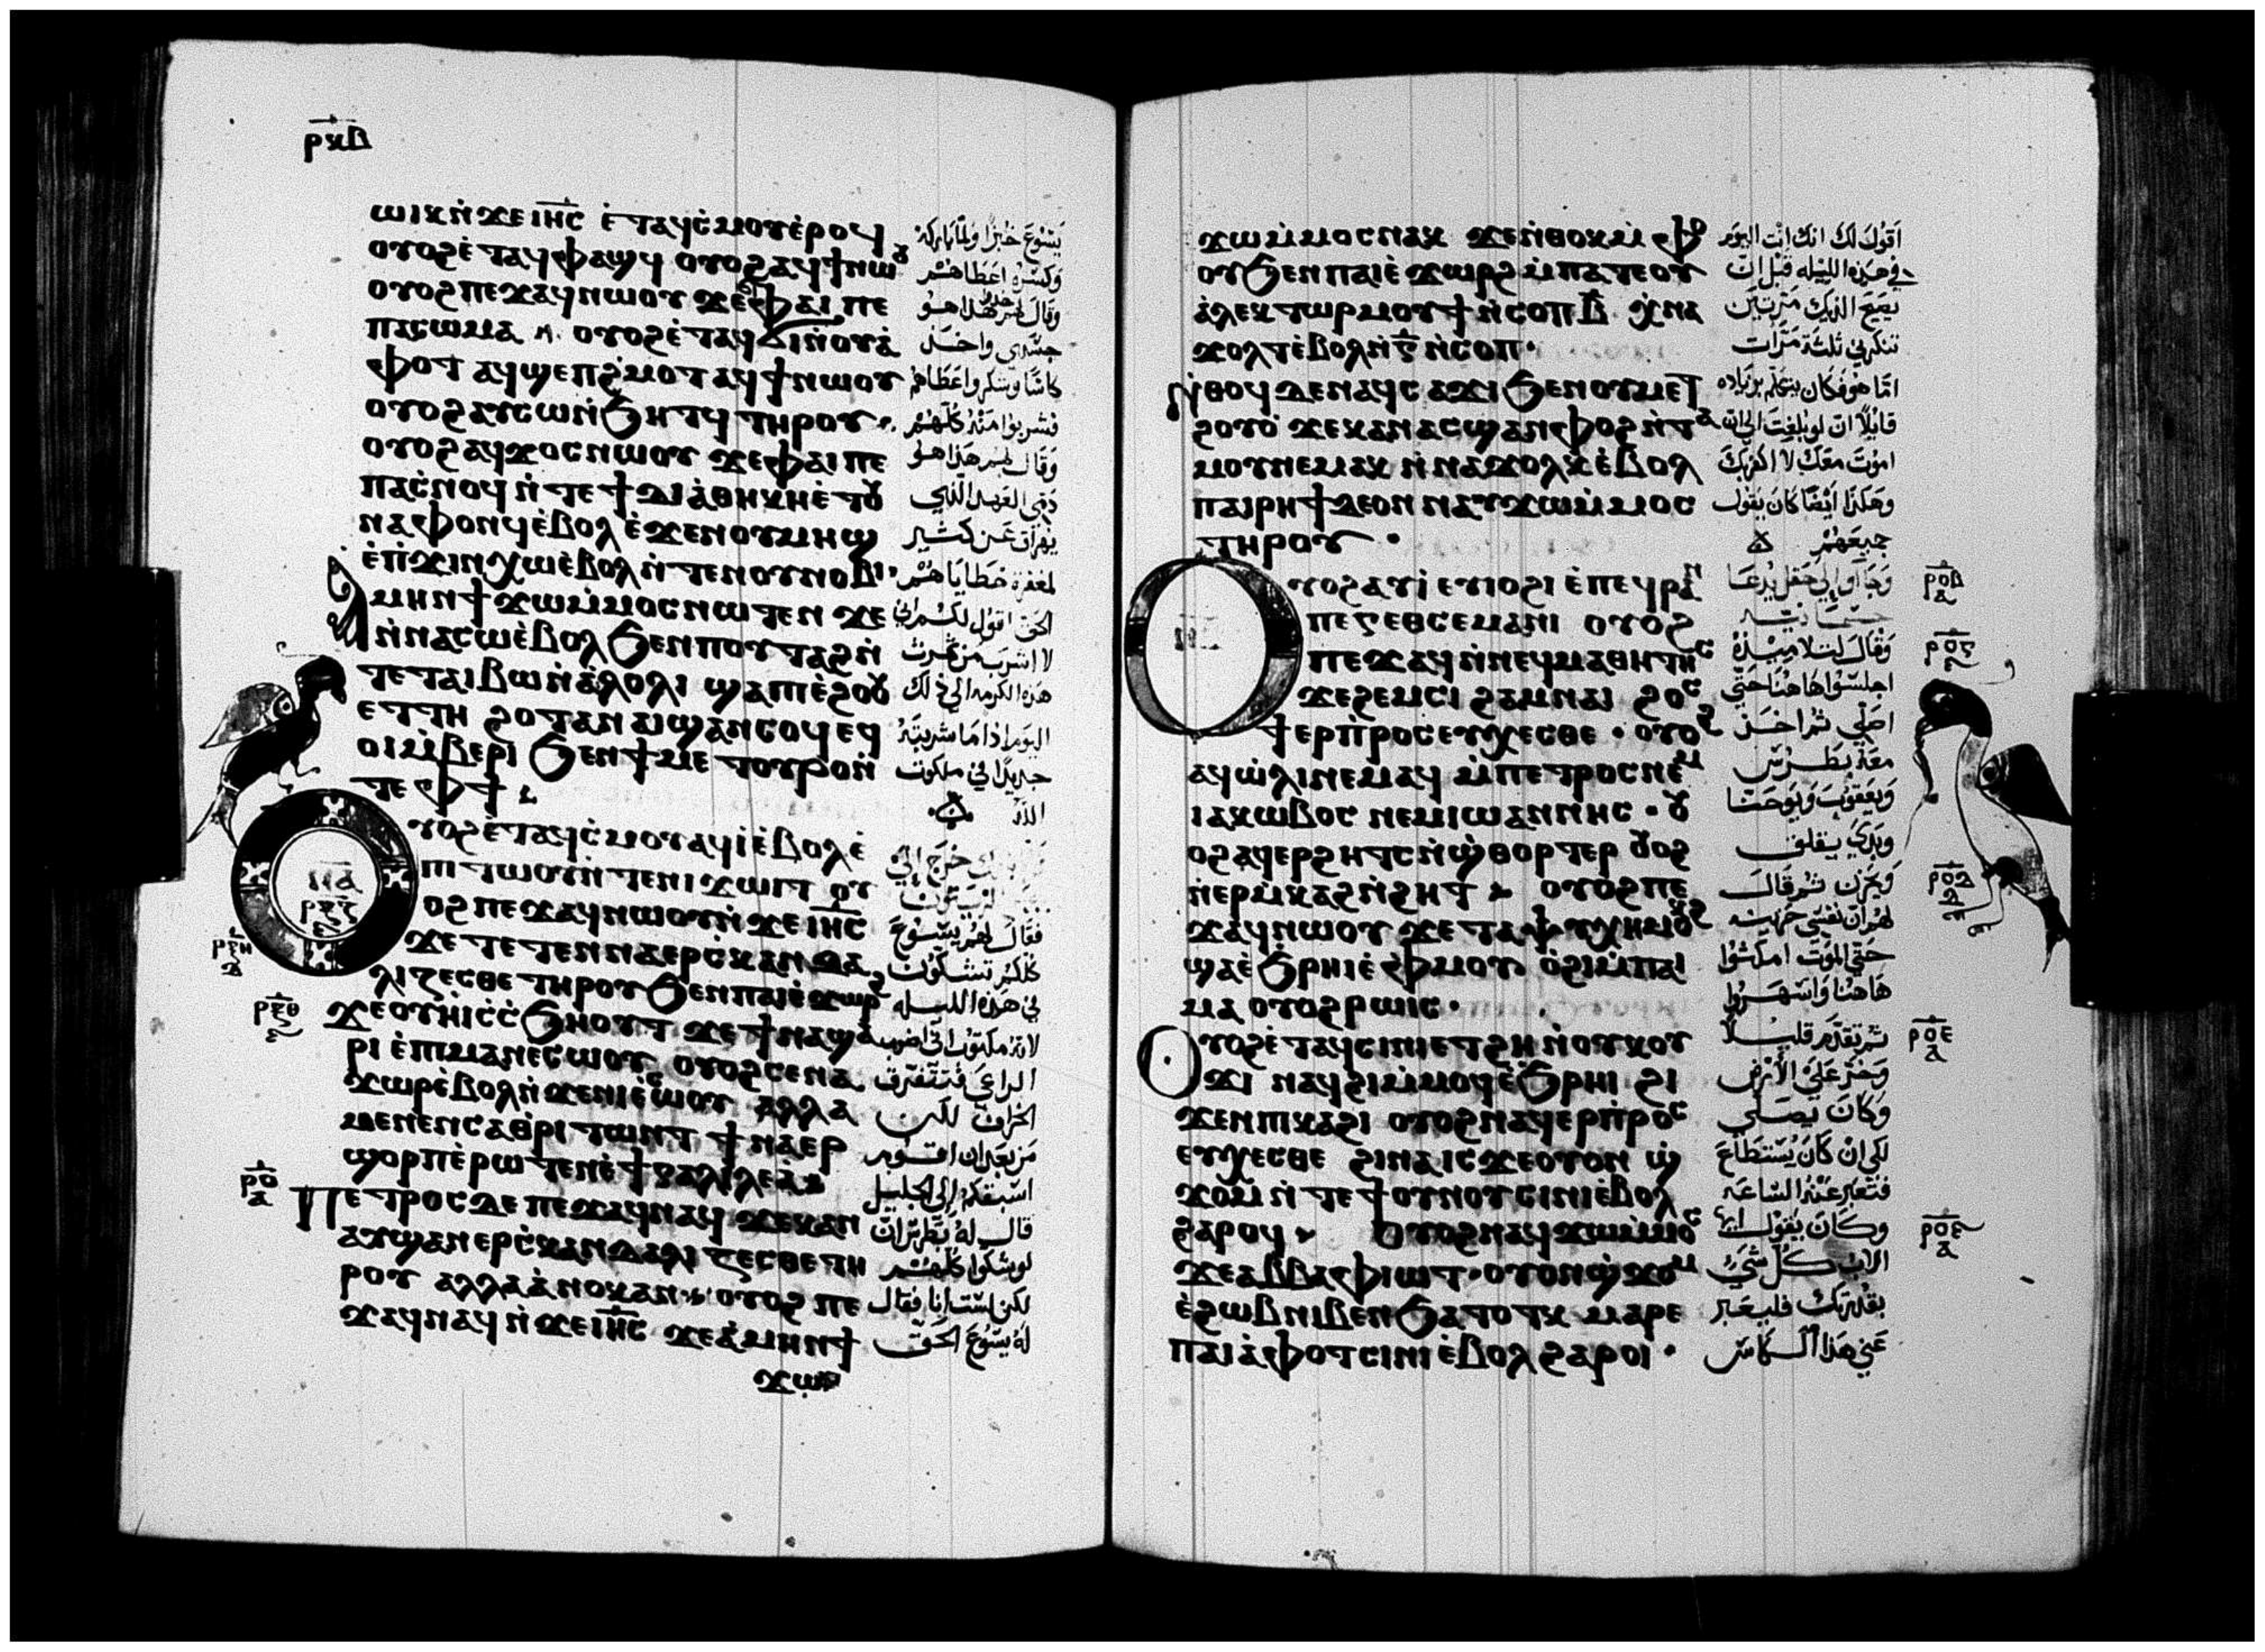 ⲣⲕⲃ
ⲱⲓⲕ ⲛ̀ϫⲉ ⲓⲏ̅ⲥ̅ ⲉ̀ⲧⲁϥⲥ̀ⲙⲟⲩ ⲉ̀ⲣⲟϥ
ⲟⲩⲟϩ ⲉ̀ⲧⲁϥⲫⲁϣϥ ⲟⲩⲟϩ ⲁϥϯ ⲛⲱⲟⲩ
ⲟⲩⲟϩ ⲡⲉϫⲁϥ ⲛⲱⲟⲩ ϫⲉ ⲫⲁⲓ ⲡⲉ
ⲡⲁⲥⲱⲙⲁ ⲟⲩⲟϩ ⲉ̀ⲧⲁϥϭⲓ ⲛ̀ⲟⲩⲁ̀
ⲫⲟⲧ ⲁϥϣⲉⲡϩ̀ⲙⲟⲧ ⲁϥϯ ⲛⲱⲟⲩ
ⲟⲩⲟϩ ⲁⲩⲥⲱ ⲛ̀ϧⲏⲧϥ ⲧⲏⲣⲟⲩ
ⲟⲩⲟϩ ⲁϥϫⲟⲥ ⲛⲱⲟⲩ ϫⲉ ⲫⲁⲓ ⲡⲉ
ⲡⲁⲥ̀ⲛⲟϥ ⲛ̀ⲧⲉ ϯⲇⲓⲁ̀ⲑⲏⲕⲏ ⲉ̀ⲧⲟⲩ
ⲛⲁⲫⲟⲛϥ ⲉ̀ⲃⲟⲗ ⲉ̀ϫⲉⲛ ⲟⲩⲙⲏϣ
ⲉ̀ⲡ̀ϫⲓⲛⲭⲱ ⲉ̀ⲃⲟⲗ ⲛ̀ⲧⲉ ⲛⲟⲩⲛⲟⲃⲓ
ⲁⲙⲏⲛ ϯϫⲱ ⲙ̀ⲙⲟⲥ ⲛⲱⲧⲉⲛ ϫⲉ
ⲛ̀ⲛⲁⲥⲱ ⲉ̀ⲃⲟⲗ ϧⲉⲛ ⲡⲟⲩⲧⲁϩ ⲛ̀
ⲧⲉ ⲧⲁⲓⲃⲱ ⲛ̀ⲁ̀ⲗⲟⲗⲓ ϣⲁ ⲡⲓⲉ̀ϩⲟⲟⲩ
ⲉⲧⲧⲏ ϩⲟⲧⲁⲛ ⲁⲓϣⲁⲛⲥⲟϥ ⲉϥ
ⲟⲓ ⲙ̀ⲃⲉⲣⲓ ϧⲉⲛ ϯⲙⲉⲧⲟⲩⲣⲟ ⲛ̀
ⲧⲉ ⲫϯ
ⲟⲩⲟϩ ⲉ̀ⲧⲁϥⲥ̀ⲙⲟⲩ ⲁϥⲓ̀ ⲉ̀ⲃⲟⲗ ⲉ̀
ⲡⲓⲧⲱⲟⲩ ⲛ̀ⲧⲉ ⲛⲓϫⲱⲓⲧ ⲟⲩ
ⲟϩ ⲡⲉϫⲁϥ ⲛⲱⲟⲩ ⲛ̀ϫⲉ ⲓⲏ̅ⲥ̅
ϫⲉ ⲧⲉⲧⲉⲛⲛⲁⲉⲣⲥ̀ⲕⲁⲛⲇⲁ
ⲗⲓⲍⲉⲥⲑⲉ ⲧⲏⲣⲟⲩ ϧⲉⲛ ⲡⲁⲓⲉ̀ϫⲱⲣϩ
ϫⲉ ⲟⲩⲏⲓ ⲥ̀ⲥ̀ϧⲏⲟⲩⲧ ϫⲉ ϯⲛⲁϣⲁ
ⲣⲓ ⲉ̀ⲡⲓⲙⲁⲛⲉⲥⲱⲟⲩ ⲟⲩⲟϩ ⲥⲉⲛⲁ
ϫⲱⲣ ⲉ̀ⲃⲟⲗ ⲛ̀ϫⲉ ⲛⲓⲉ̀ⲥⲱⲟⲩ ⲁⲗⲗⲁ
ⲙⲉⲛⲉⲛⲥⲁ ⲑⲣⲓⲧⲱⲛⲧ ϯⲛⲁⲉⲣ
ϣⲟⲣⲡ ⲉ̀ⲣⲱⲧⲉⲛ ⲉ̀ϯⲅⲁⲗⲓⲗⲉⲁ̀
ⲡⲉⲧⲣⲟⲥ ⲇⲉ ⲡⲉϫⲁϥ ⲛⲁϥ ϫⲉ ⲕⲁⲛ
ⲁⲩϣⲁⲛⲉⲣⲥ̀ⲕⲁⲛⲇⲁⲗⲓⲍⲉⲥⲑⲉ ⲧⲏ
ⲣⲟⲩ ⲁⲗⲗⲁ ⲁ̀ⲛⲟⲕ ⲁⲛ ⲟⲩⲟϩ ⲡⲉ
ϫⲁϥ ⲛⲁϥ ⲛ̀ϫⲉ ⲓⲏ̅ⲥ̅ ϫⲉ ⲁ̀ⲙⲏⲛ ϯ
ϫⲱ
ⲣⲝⲏ
ⲇ
ⲣⲝⲑ
ⲣⲟ
ⲁ
يسوع خبزا ولما باركه
وكسره اعطاهم
وقال لهم خذوا هذا هو
جسدي واخذ
كاسا وشكر واعطاهم
فشربوا منه كلهم
وقال لهم هذا هو
دمي العهد الذي
يهراق عن كثير
لمغفرة خطاياهم
الحق اقول لكم اني
لا اشرب من ثمرة
هذه الكرمه الى ذلك
اليوم اذا ما شربته
جديدا في ملكوت
الله
خرج الى
فقال لهم يسوع
كلكم تشكون
في هذه الليله
لانه مكتوب اني اضرب
الراعي فتتفرق
الخراف لكن
من بعد ان اقوم
اسبقكم الى الجليل
قال له بطرس ان
لو شكوا كلهم
لكن لست انا فقال
له يسوع الحق
ϫⲱ ⲙ̀ⲙⲟⲥ ⲛⲁⲕ ϫⲉ ⲛ̀ⲑⲟⲕ ⲙ̀ⲫⲟ
ⲟⲩ ϧⲉⲛ ⲡⲁⲓⲉ̀ϫⲱⲣϩ ⲙ̀ⲡⲁⲧⲉ ⲟⲩ
ⲁ̀ⲗⲉⲕⲧⲱⲣ ⲙⲟⲩϯ ⲛ̀ⲥⲟⲡ ⲃ̅ ⲭ̀ⲛⲁ
ϫⲟⲗⲧ ⲉ̀ⲃⲟⲗ ⲛ̀ⲅ̅ ⲛ̀ⲥⲟⲡ
ⲛ̀ⲑⲟϥ ⲇⲉ ⲛⲁϥⲥⲁϫⲓ ϧⲉⲛ ⲟⲩⲙⲉⲧ
ϩⲟⲩⲟ̀ ϫⲉ ⲕⲁⲛ ⲁⲥϣⲁⲛⲫⲟϩ ⲛ̀ⲧⲁ
ⲙⲟⲩ ⲛⲉⲙⲁⲕ ⲛ̀ⲛⲁϫⲟⲗⲕ ⲉ̀ⲃⲟⲗ
ⲡⲁⲓⲣⲏϯ ⲇⲉ ⲟⲛ ⲛⲁⲩϫⲱ ⲙ̀ⲙⲟⲥ
ⲧⲏⲣⲟⲩ
ⲟⲩⲟϩ ⲁⲩⲓ̀ ⲉⲩⲓⲟϩⲓ ⲉ̀ⲡⲉϥⲣⲁⲛ
ⲡⲉ ⲅⲉⲑⲥⲉⲙⲁⲛⲓ ⲟⲩⲟϩ
ⲡⲉϫⲁϥ ⲛ̀ⲛⲉϥⲙⲁⲑⲏⲧⲏⲥ
ϫⲉ ϩⲉⲙⲥⲓ ϩⲁⲙⲛⲁⲓ ϩⲟⲥ
ϯⲉⲣⲡ̀ⲣⲟⲥⲉⲩⲭⲉⲥⲑⲉ ⲟⲩⲟϩ
ⲁϥⲱ̀ⲗⲓ ⲛⲉⲙⲁϥ ⲙ̀ⲡⲉⲧⲣⲟⲥ ⲛⲉⲙ
ⲓⲁⲕⲱⲃⲟⲥ ⲛⲉⲙ ⲓⲱⲁⲛⲛⲏⲥ ⲟⲩ
ⲟϩ ⲁϥⲉⲣϩⲏⲧⲥ ⲛ̀ϣ̀ⲑⲟⲣⲧⲉⲣ ⲟⲩⲟϩ
ⲛ̀ⲉⲣⲙ̀ⲕⲁϩ ⲛ̀ϩⲏⲧ ⲟⲩⲟϩ ⲡⲉ
ϫⲁϥ ⲛⲱⲟⲩ ϫⲉ ⲧⲁⲯⲩⲭⲏ ⲙⲟⲕϩ
ϣⲁ ⲉ̀ϧⲣⲏⲓ ⲉ̀ⲫⲙⲟⲩ ⲟ̀ϩⲓ ⲙ̀ⲡⲁⲓ
ⲙⲁ ⲟⲩⲟϩ ⲣⲱⲓⲥ
ⲟⲩⲟϩ ⲉ̀ⲧⲁϥⲥⲓⲛⲓ ⲉⲧϩⲏ ⲛ̀ⲟⲩⲕⲟⲩ
ϫⲓ ⲛⲁϥϩⲓ ⲙ̀ⲙⲟϥ ⲉ̀ϧⲣⲏⲓ ϩⲓ
ϫⲉⲛ ⲡⲓⲕⲁϩⲓ ⲟⲩⲟϩ ⲛⲁϥⲉⲣⲡ̀ⲣⲟⲥ
ⲉⲩⲭⲉⲥⲑⲉ ϩⲓⲛⲁ ⲓⲥϫⲉ ⲟⲩⲟⲛ ϣ̀
ϫⲟⲙ ⲛ̀ⲧⲉ ϯⲟⲩⲛⲟⲩ ⲥⲓⲛⲓ ⲉ̀ⲃⲟⲗ
ϩⲁⲣⲟϥ ⲟⲩⲟϩ ⲛⲁϥϫⲱ ⲙ̀ⲙⲟⲥ
ϫⲉ ⲁⲃⲃⲁ ⲫⲓⲱⲧ ⲟⲩⲟⲛ ϣ̀ϫⲟⲙ
ⲉ̀ϩⲱⲃ ⲛⲓⲃⲉⲛ ϧⲁⲧⲟⲧⲕ ⲙⲁⲣⲉ
ⲡⲁⲓⲁ̀ⲫⲟⲧ ⲥⲓⲛⲓ ⲉ̀ⲃⲟⲗ ϩⲁⲣⲟⲓ
اقول لك انك انت اليوم
في هذه الليله قبل ان
يصيح الديك مرتين
تنكرني ثلثة مرات
اما هو فكان يتكلم بزياده
قايلا ان لو بلغت الى ان
اموت معك لا انكرك
وهكذا ايضا كان يقول
جميعهم
وقال لتلاميذه
اجلسوا هاهنا حتى
اصلي ثم اخذ
معه بطرس
ويعقوب ويوحنا
وبدي يقلق
ويحزن ثم قال
لهم ان نفسي حزينه
حتى الموت امكثوا
هاهنا واسهروا
ثم تقدم قليلا
وخر على الارض
وكان يصلي
لكي ان كان يستطاع
فتعبر عنه الساعه
وكان يقول ايها
الاب كل شي
بقدرتك فليعبر
عني هذا الكاس
ⲣⲟⲃ
ⲁ
ⲣⲟⲇ
ⲇ
ⲣⲟⲉ
ⲁ